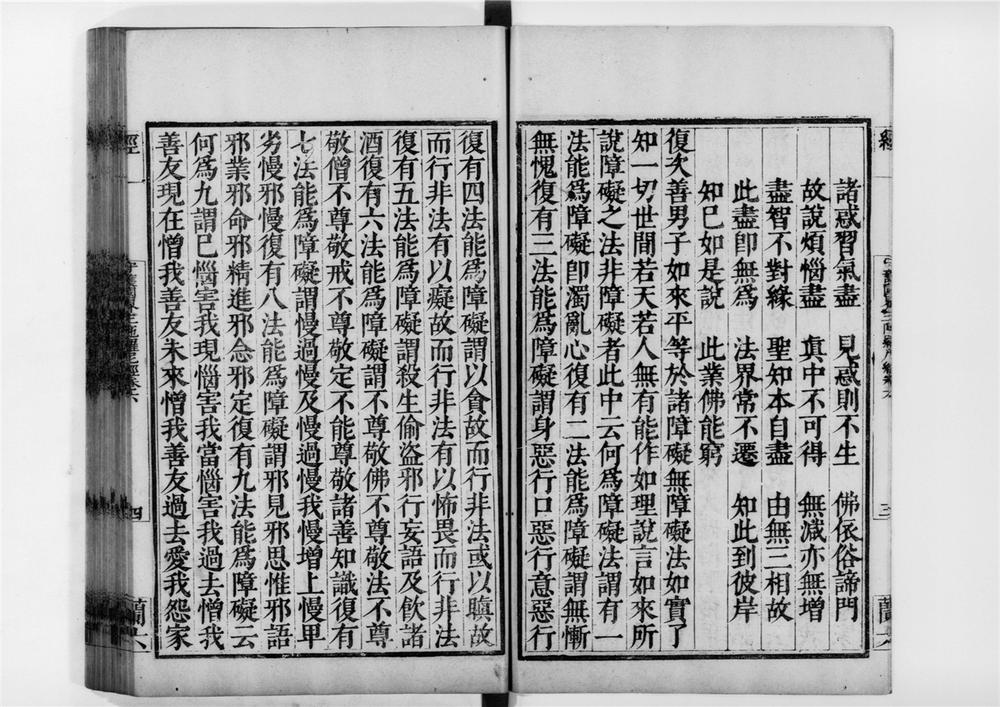 諸惑習氣盡　見惑則不生　佛依俗諦門
故說煩惱盡　真中不可得　無減亦無增
盡智不對緣　聖知本自盡　由無三相故
此盡卽無爲　法界常不遷　知此到彼岸
知已如是說　此業佛能窮
復次善男子如來平等於諸障礙無障礙法如實了
知一切世間若天若人無有能作如理說言如來所
說障礙之法非障礙者此中云何爲障礙法謂有一
法能爲障礙卽濁亂心復有二法能爲障礙謂無慚
無愧復有三法能爲障礙謂身惡行口惡行意惡行
三
蘭六
復有四法能爲障礙謂以貪故而行非法或以瞋故
而行非法有以癡故而行非法有以怖畏而行非法
復有五法能爲障礙謂殺生偷盜邪行妄語及飲諸
酒復有六法能爲障礙謂不尊敬佛不尊敬法不尊
敬僧不尊敬戒不尊敬定不能尊敬諸善知識復有
七法能爲障礙謂慢過慢及慢過慢我慢增上慢卑
劣慢邪慢復有八法能爲障礙謂邪見邪思惟邪語
邪業邪命邪精進邪念邪定復有九法能爲障礙云
何爲九謂已惱害我現惱害我當惱害我過去憎我
善友現在憎我善友未來憎我善友過去愛我怨家
經
四
蘭六